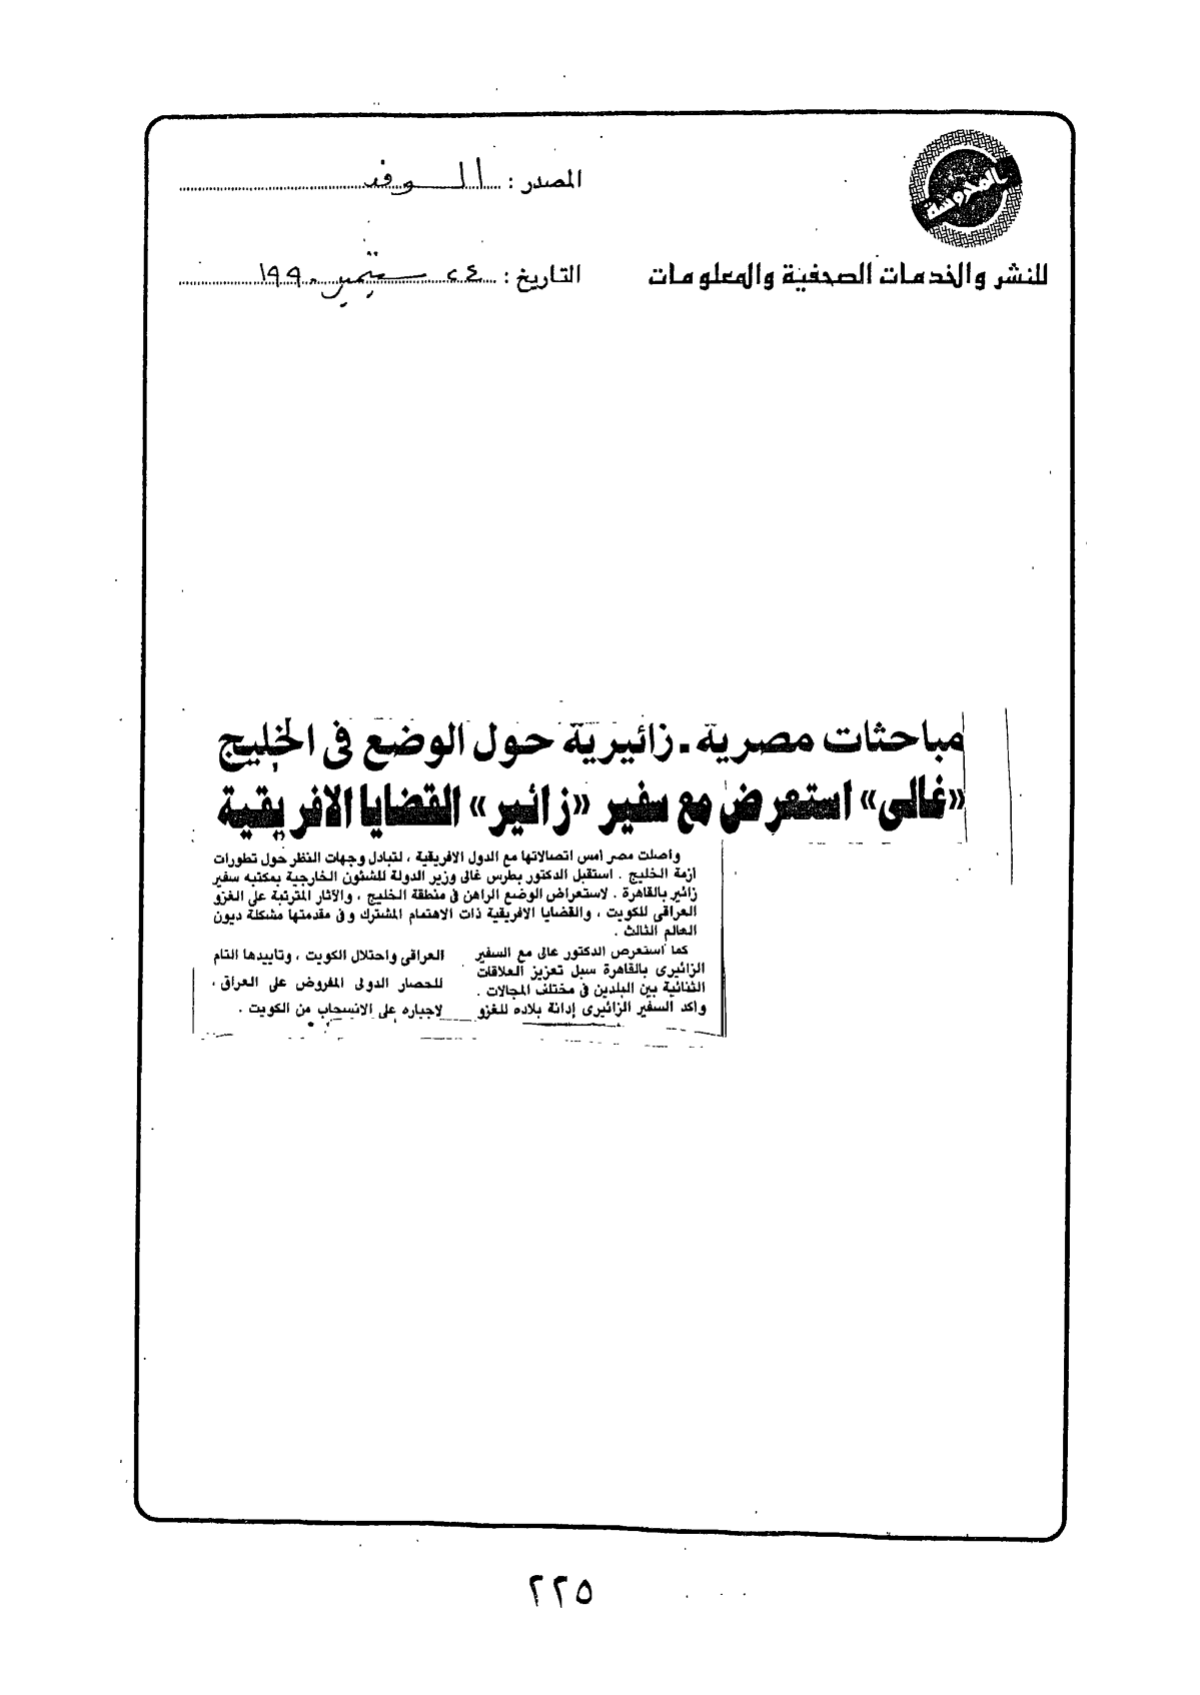 المحروسة
للنشر والخدمات الصحفية والمعلومات
المصدر : الوفد
التاريخ : ٢٤ سبتمبر ١٩٩٠
مباحثات مصرية ـ زائيرية حول الوضع فى الخليج
«غالى» استعرض مع سفير «زائير» القضايا الافريقية
واصلت مصر امس اتصالاتها مع الدول الافريقية ، لتبادل وجهات النظر حول تطورات
ازمة الخليج . استقبل الدكتور بطرس غالى وزير الدولة للشئون الخارجية بمكتبه سفير
زائير بالقاهرة . لاستعراض الوضع الراهن فى منطقة الخليج ، والآثار المترتبة على الغزو
العراقى للكويت ، والقضايا الافريقية ذات الاهتمام المشترك وفى مقدمتها مشكلة ديون
العالم الثالث .
كما استعرض الدكتور غالى مع السفير
الزائيرى بالقاهرة سبل تعزيز العلاقات
الثنائية بين البلدين فى مختلف المجالات .
واكد السفير الزائيرى إدانة بلاده للغزو
العراقى واحتلال الكويت ، وتأييدها التام
للحصار الدولى المفروض على العراق ،
لاجباره على الانسحاب من الكويت .
٢٢٥